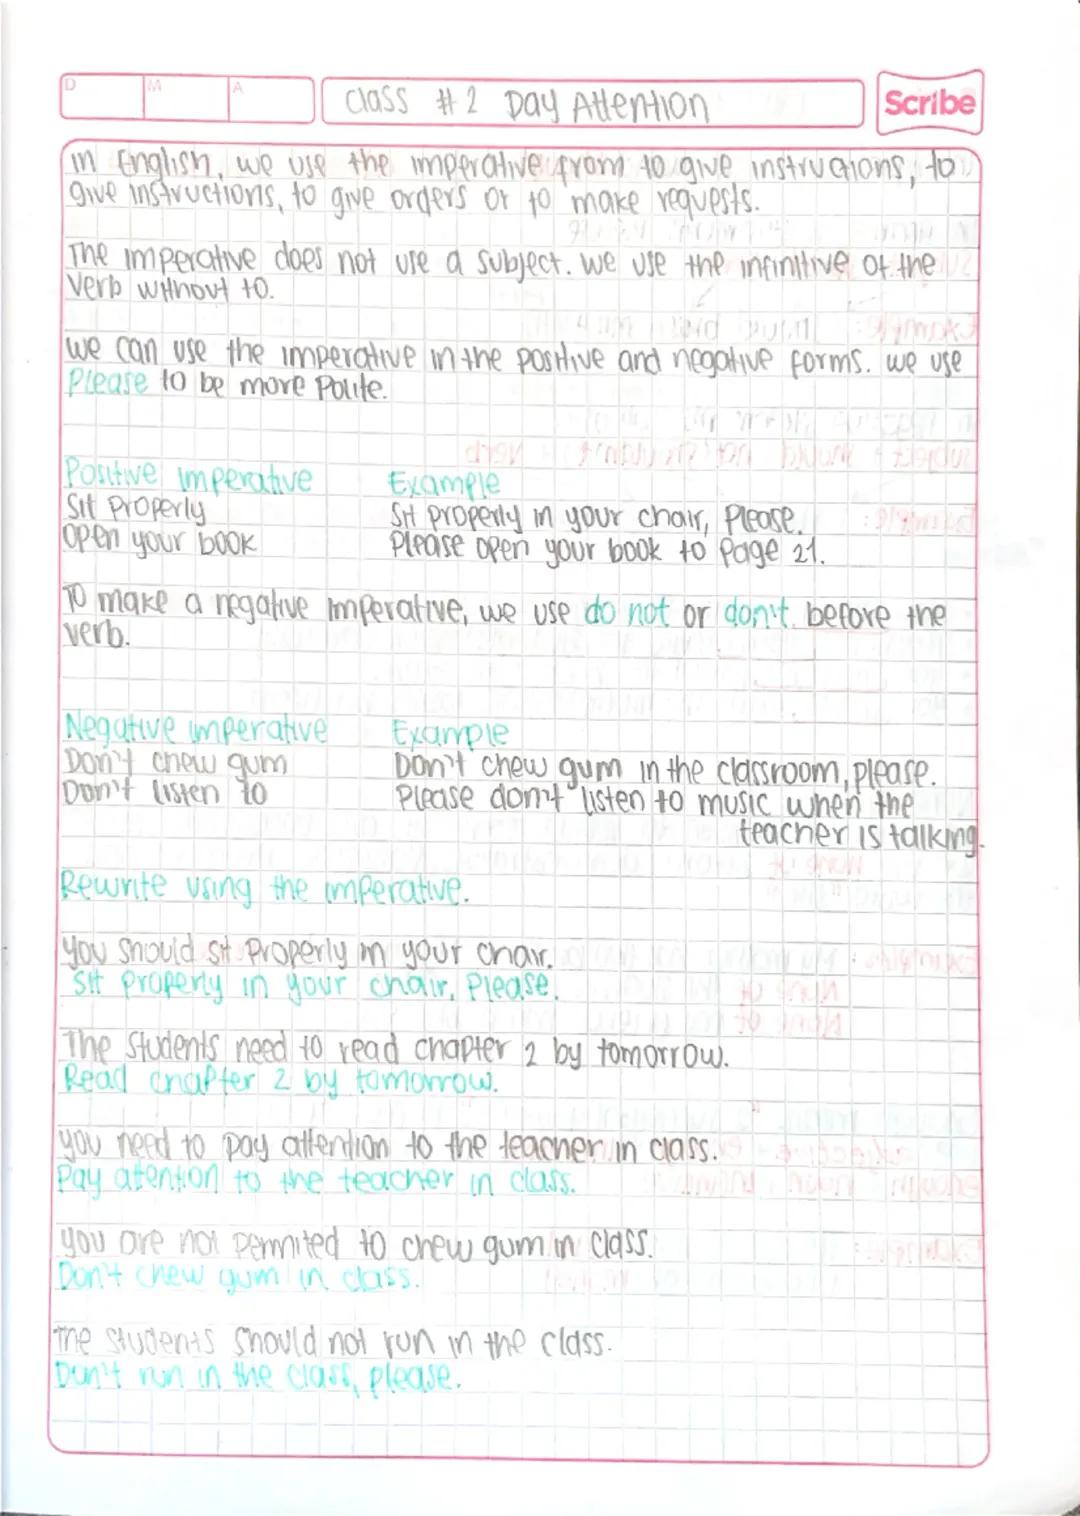 D M A
Class #2 Day Attention
Scribe
In English, we use the imperative from to give instructions, to
give instructions, to give orders or to make requests.
The imperative does not use a subject. we use the infinitive of the
Verb without to.
we can use the imperative in the positive and negative forms. we use
Please to be more Polite.
Positive imperative Example
Sit Properly Sit properly in your chair, Please.
Open your book Please open your book to Page 21.
To make a negative imperative, we use do not or don't before the
verb.
Negative imperative Example
Don't chew gum Don't chew gum in the classroom, please.
Don't listen to Please don't listen to music when the
teacher is talking.
Rewrite using the imperative.
you should sit Properly in your chair.
Sit properly in your chair, Please.
The Students need to read chapter 2 by tomorrow.
Read chapter 2 by tomorrow.
you need to pay attention to the teacher in class.
Pay atention to the teacher in class.
you are not permited to chew gum in class.
Don't chew gum in class.
The students should not run in the class.
Don't run in the class, please.